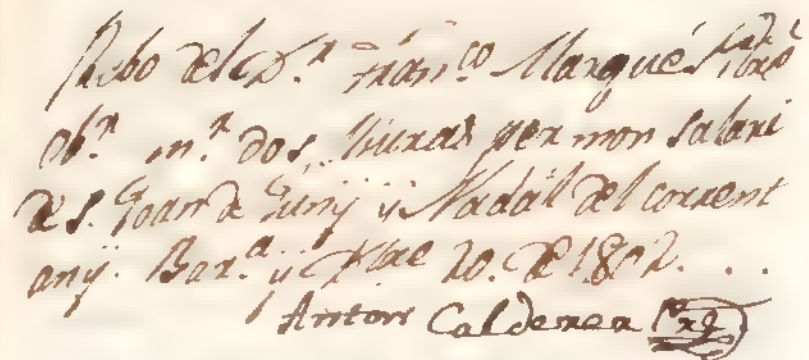 Rebo del Dr. Franco Marqués
obr. mr. dos lliuras per mon salari
de S. Joan de Juny y Nadal del corrent
any. Bar.a y Xbre 20. de 1802...
Anton Calderer